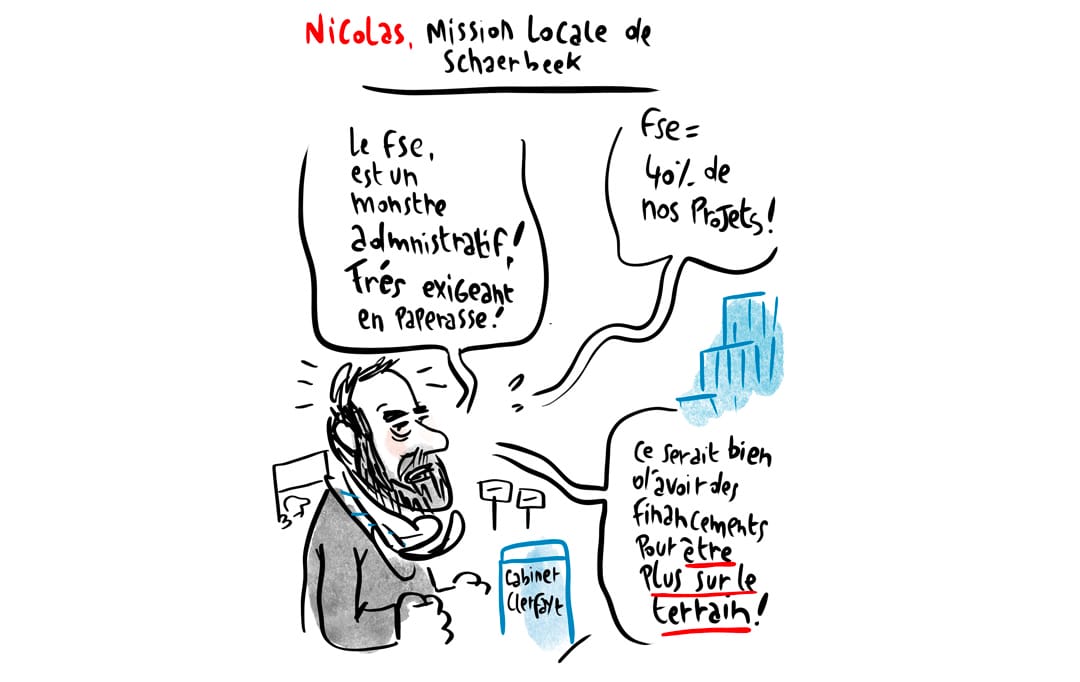 Nicolas, Mission Locale de
Schaerbeek
Le FSE,
est un
monstre
admnistratif!
Trés exigeant
en paperasse!
FSE =
40% de
nos Projets!
Ce serait bien
d'avoir des
financements
Pour être
Plus sur le
terrain!
Cabinet
Clerfayt